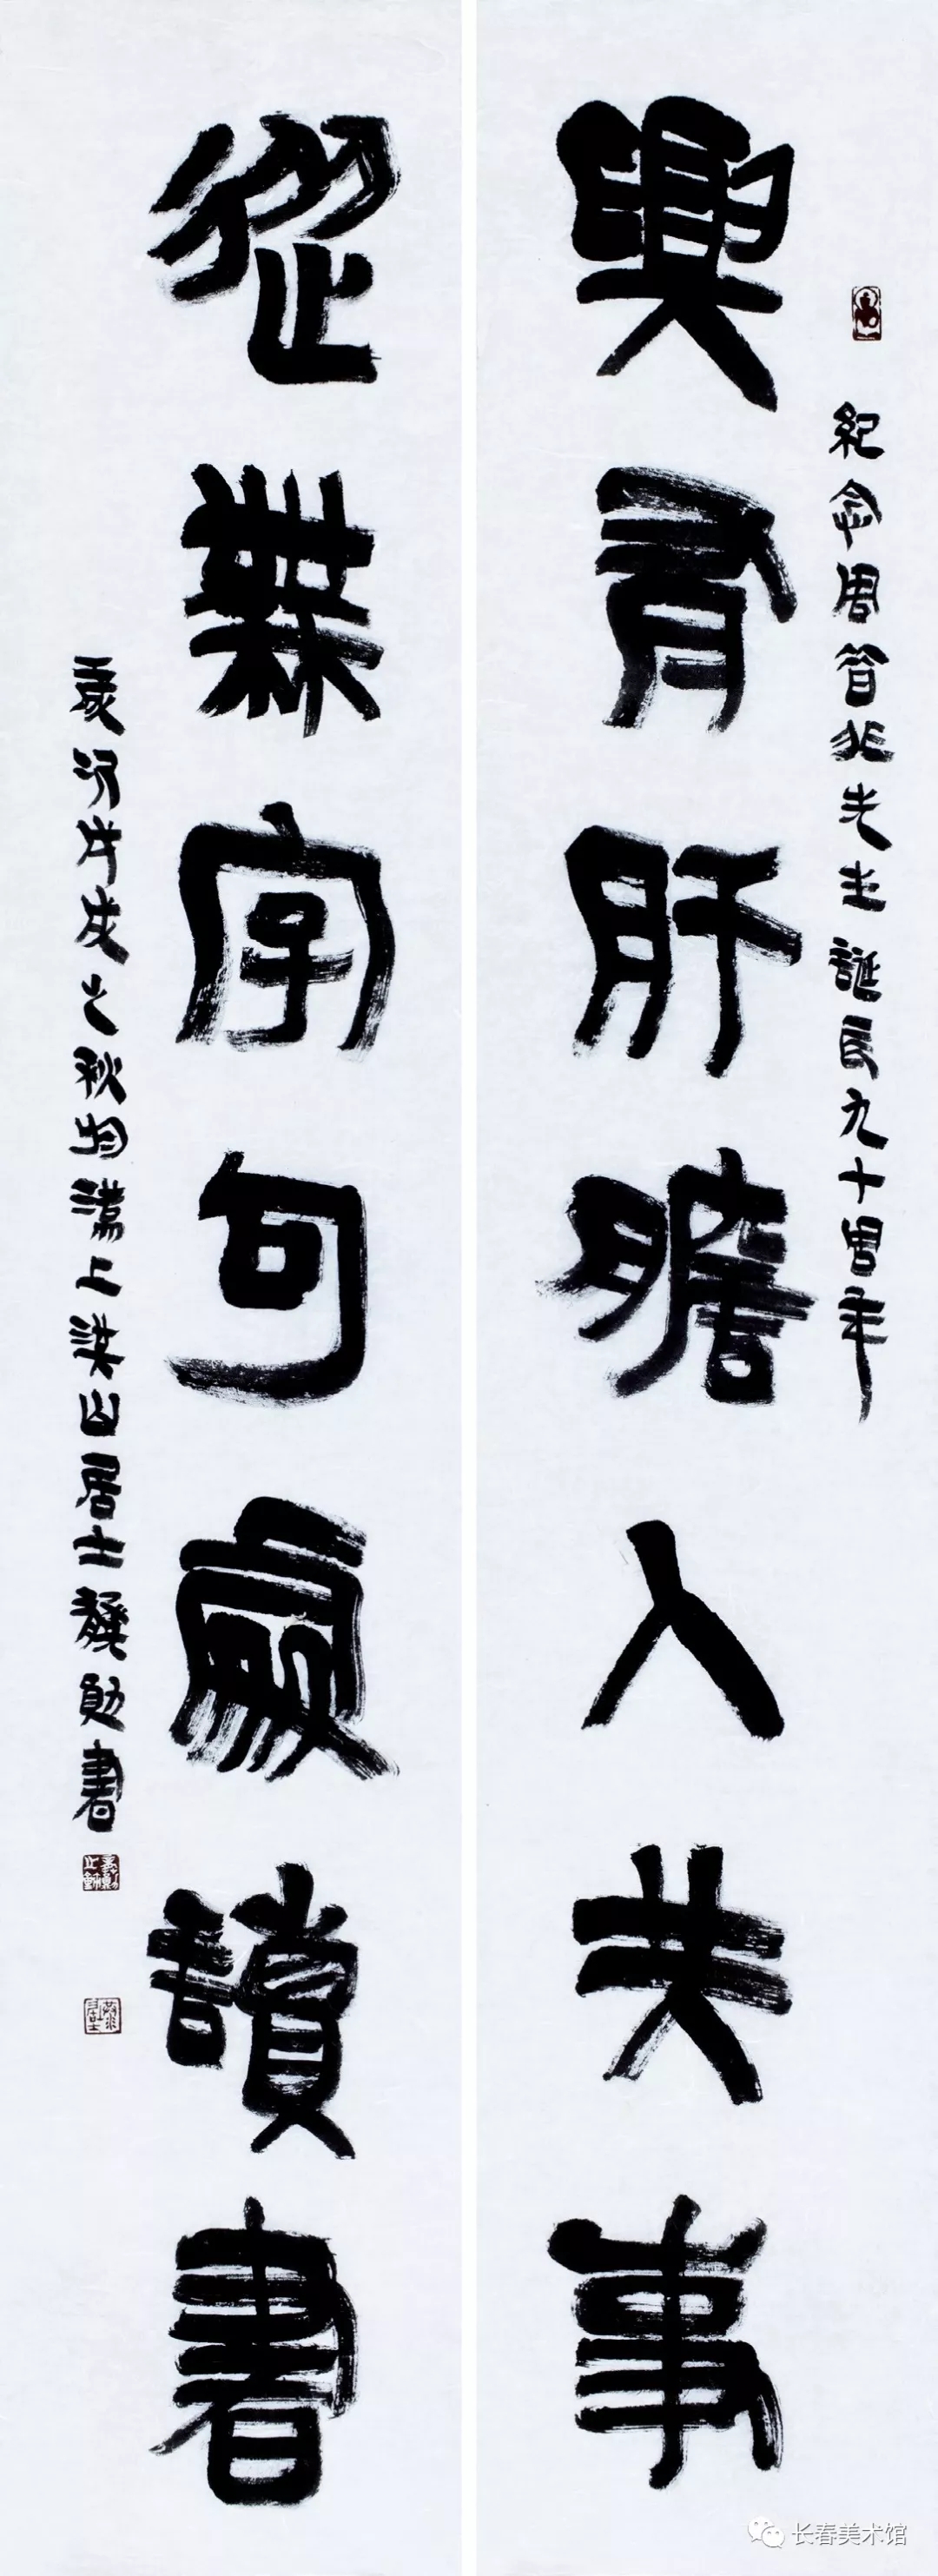 紀念周昔非先生誕辰九十周年
與有肝膽人共事
從無字句處讀書
歲次戊戌之秋上梁山居士龔勛書
长春美术馆